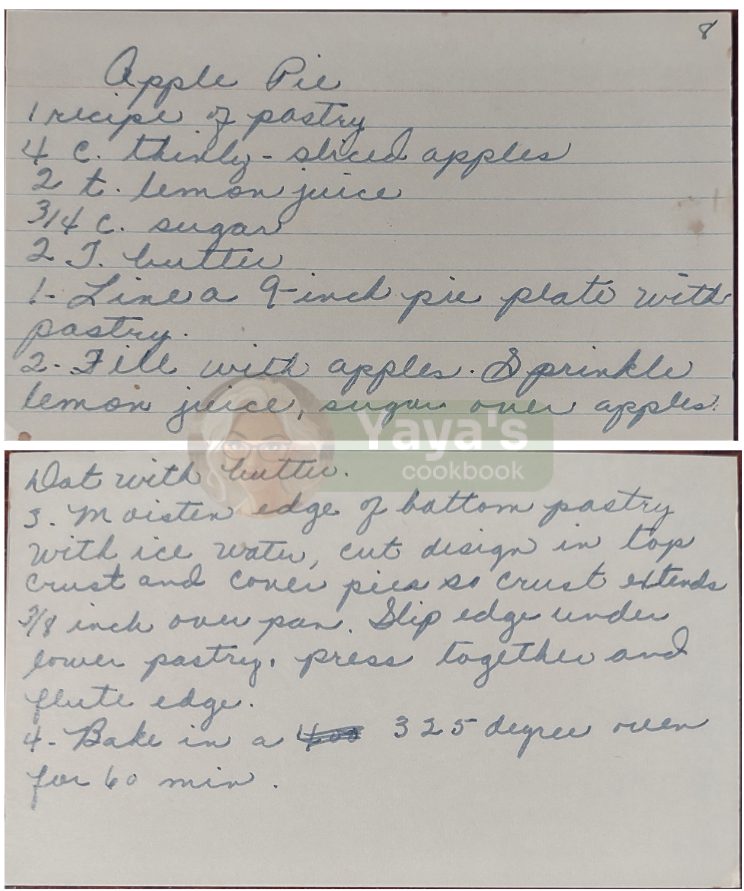 8
Apple Pie
1 recipe of pastry
4 c. thinly-sliced apples
2 t. lemon juice
3/4 c. sugar
2 T. butter
1- Line a 9-inch pie plate with
pastry.
2- Fill with apples. Sprinkle
lemon juice, sugar over apples.
Yaya's
cookbook
Dot with butter.
3. Moisten edge of bottom pastry
with ice water, cut design in top
crust and cover pies so crust extends
3/8 inch over pan. Slip edge under
lower pastry, press together and
flute edge.
4- Bake in a 325 degree oven
for 60 min.